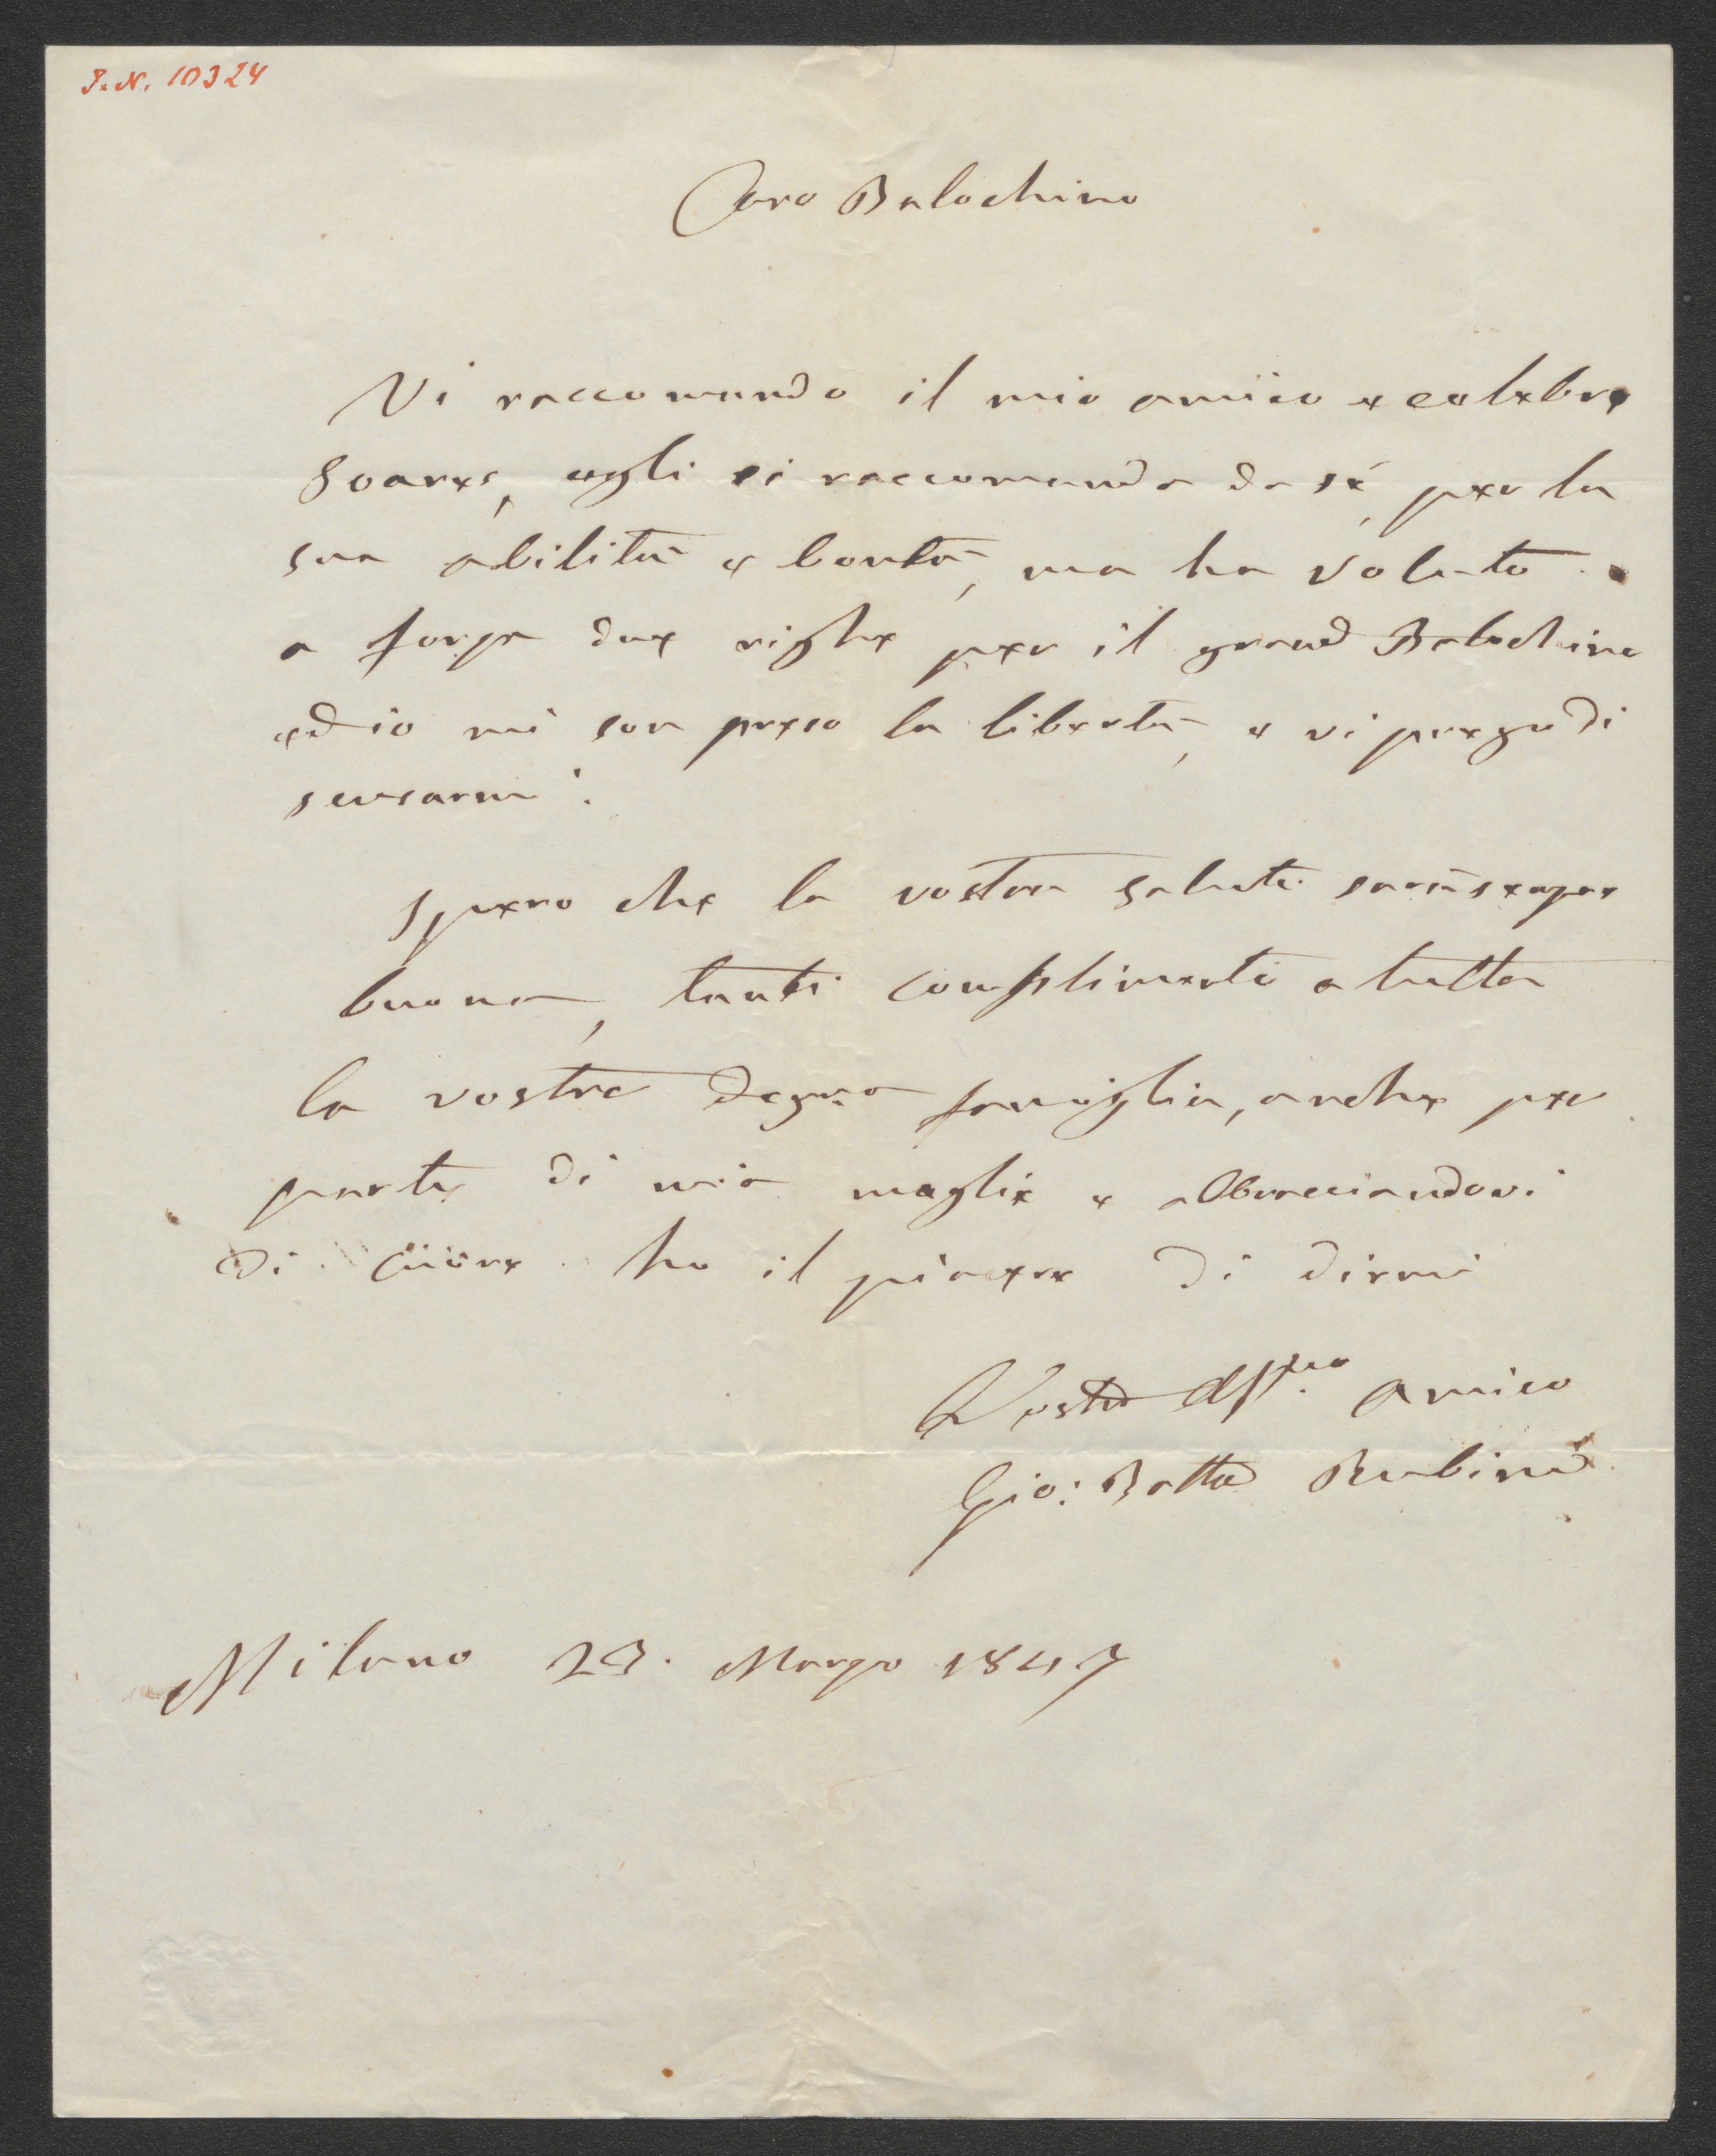 I.N. 10324
Caro Balochino
Vi raccomando il mio amico e celebre
Soares, egli si raccomanda da sé, per la
sua abilità e bontà, ma ha voluto
a forza due righe per il grand Balochino
ed io mi son preso la libertà, e vi prego di
scusarmi.
Spero che la vostra salute sarà sempre
buona, tanti complimenti a tutta
la vostra degna famiglia, anche per
parte di mia moglie e abbracciandovi
di cuore ho il piacere di dirmi
Vostro affmo amico
Gio: Batta Rubini
Milano 23. Marzo 1847